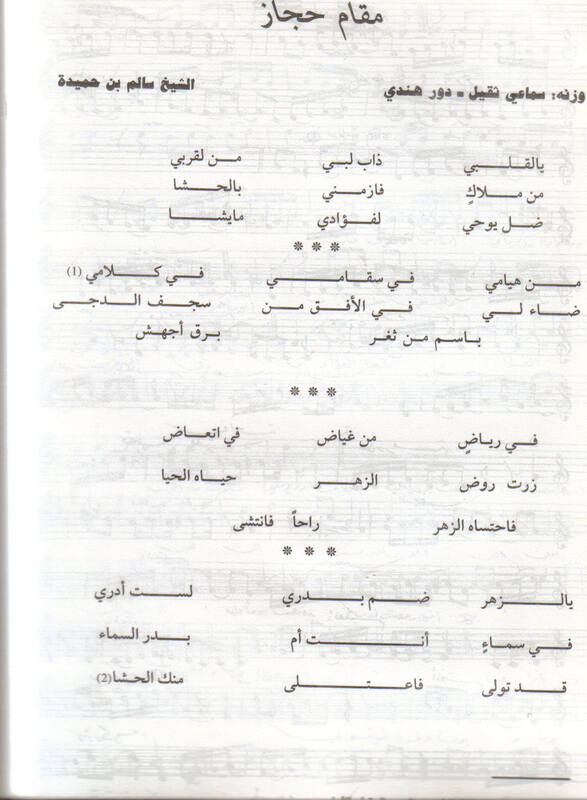 مقام حجاز
وزنه: سماعي ثقيل - دور هندي الشيخ سالم بن حميدة
يالقلبي ذاب لبي من لقربي
من ملاكٍ فازمني بالحشا
ضل يوحي لفؤادي مايشا
***
من هيامي في سقامي في كلامي (1)
ضاء لي في الأفق من سجف الدجى
باسم من ثغر برق أجهش
***
في رياضٍ من غياض في اتعاض
زرت روض الزهر حياه الحيا
فاحتساه الزهر راحاً فانتشى
***
يالزهر ضم بدري لست أدري
في سماءٍ أنت أم بدر السماء
قد تولى فاعتلى منك الحشا(2)